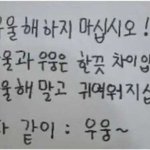 우울해 하지 마십시오!
우울과 우웅은 한끗 차이입
우울해 말고 귀여워지십
다 같이 : 우웅~